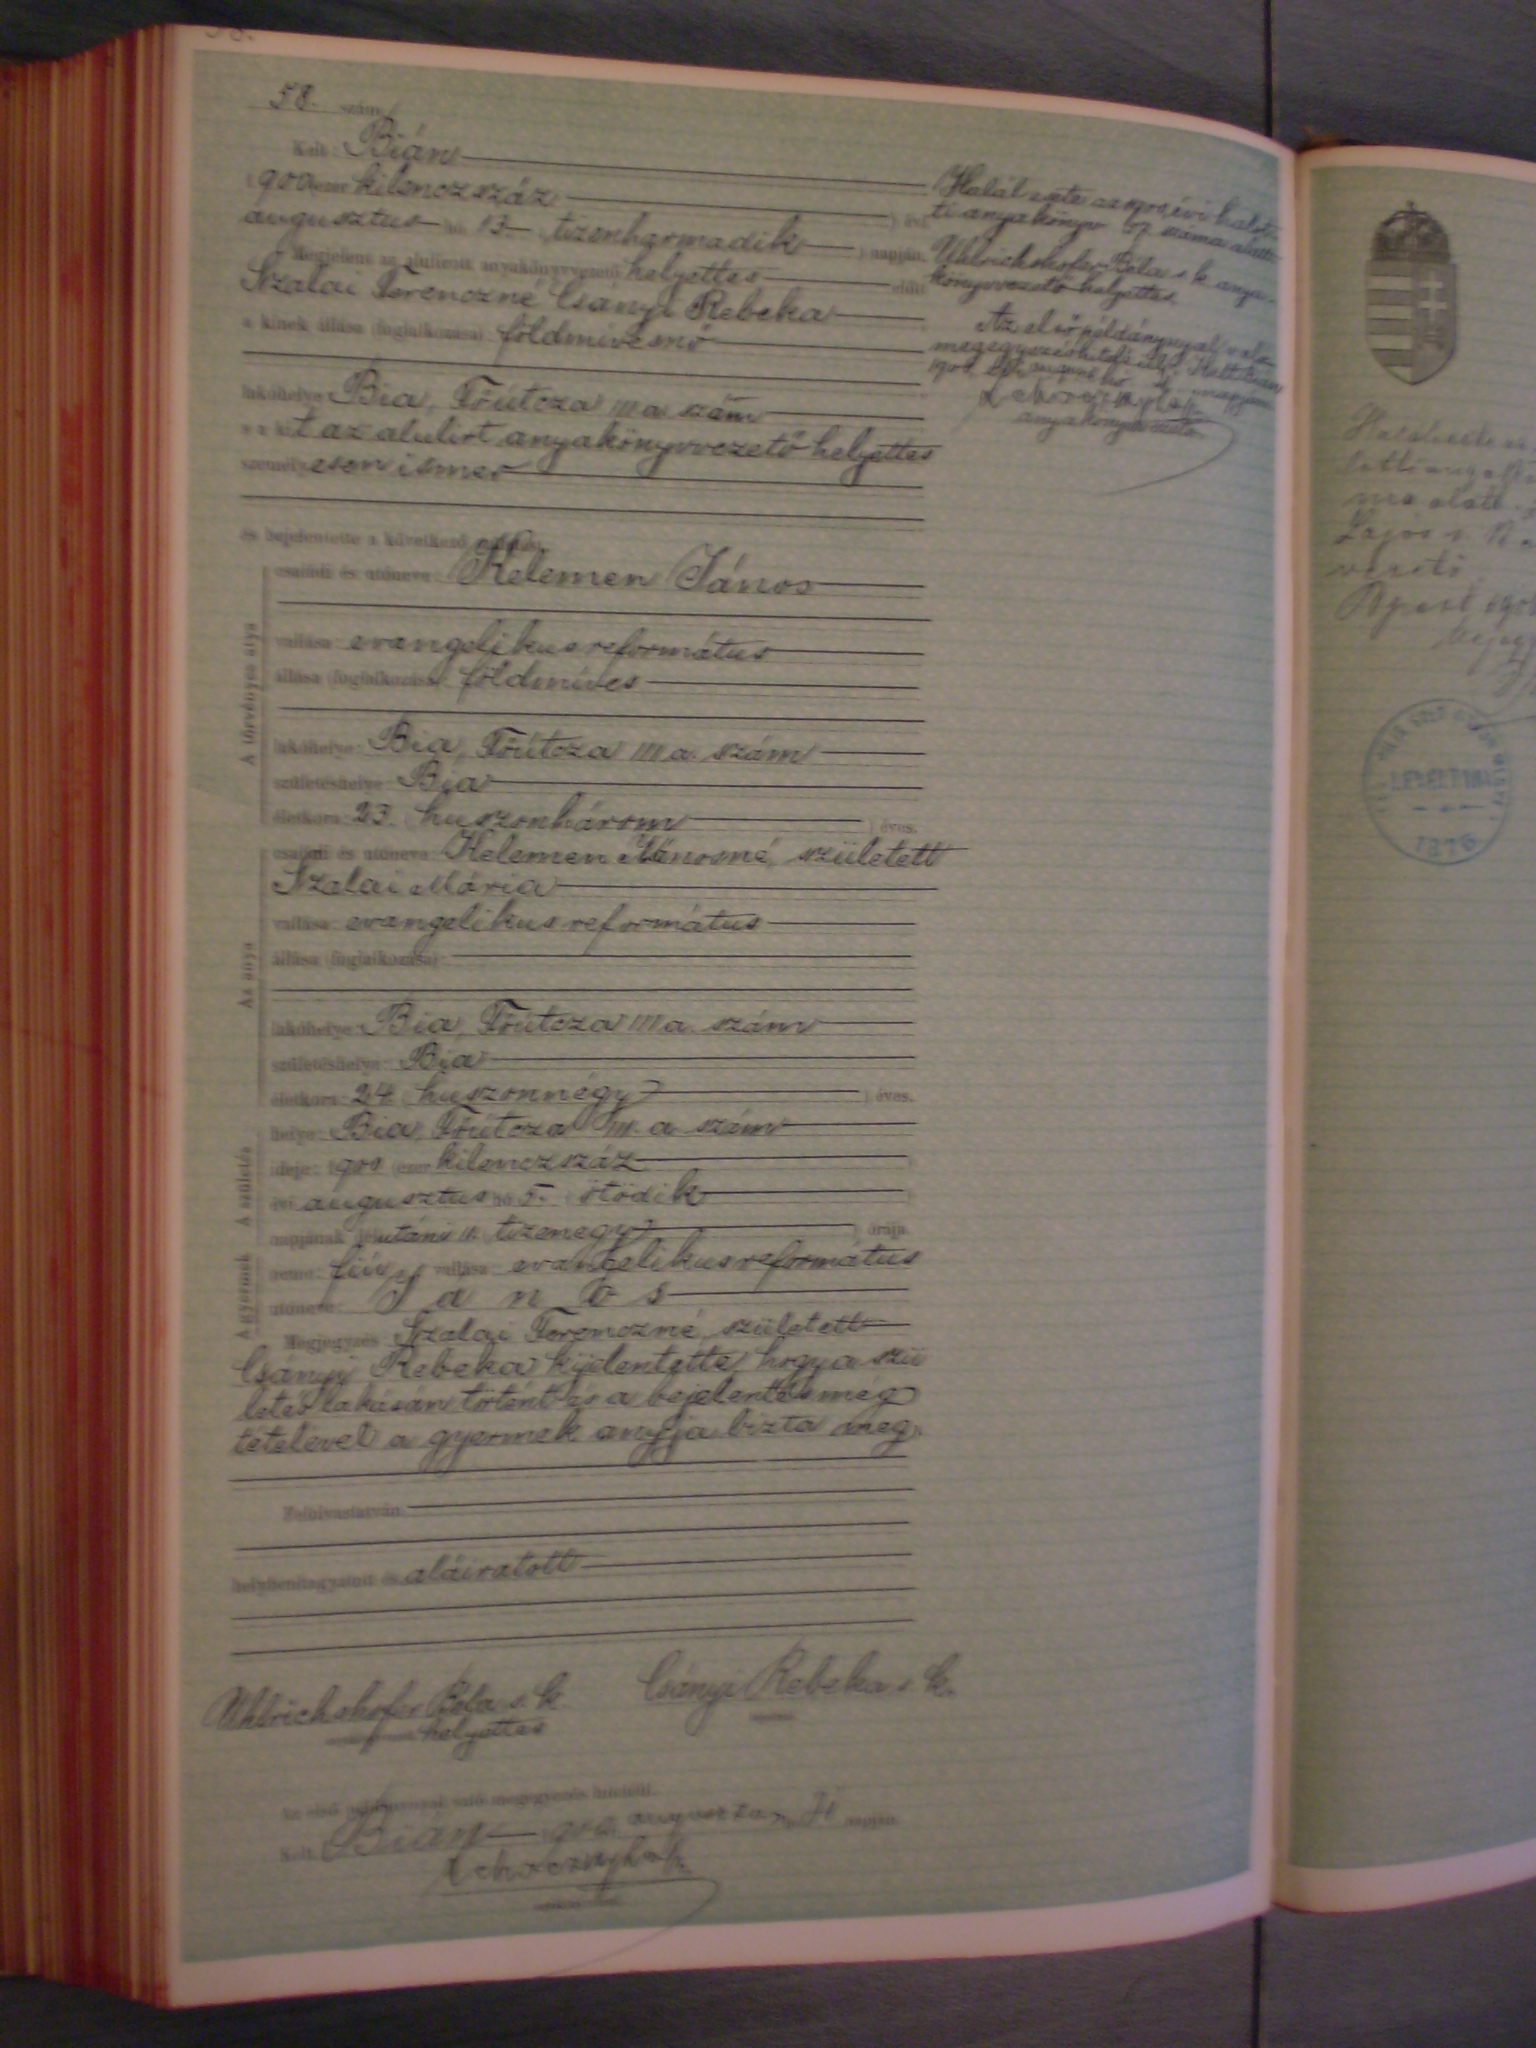 58. szám
Kelt: Bián
1900 ezer kilenczszáz ) évi
augusztus hó 13 ( tizenharmadik ) napján.
Megjelent az alulírott anyakönyvvezető helyettes előtt
Szalai Ferenczné Csányi Rebeka
a kinek állása (foglalkozása): földmivesnő
lakóhelye: Bia, Főútcza 111 a. szám
s a kit az alulírt anyakönyvvezető helyettes
személyesen ismer
és bejelentette a következő születést:
A törvényes atya
családi és utóneve: Kelemen János
vallása: evangelikus református
állása (foglalkozása): földmíves
lakóhelye: Bia, Főútcza 111 a. szám
születéshelye: Bia
életkora: 23 ( huszonhárom ) éves.
Az anya
családi és utóneve: Kelemen Jánosné, született
Szalai Mária
vallása: evangelikus református
állása (foglalkozása):
lakóhelye: Bia, Főútcza 111 a. szám
születéshelye: Bia
életkora: 24 ( huszonnégy ) éves.
A születés
helye: Bia, Főútcza 111. a. szám
ideje: 1900 (ezer kilenczszáz )
évi augusztus hó 5. ( ötödik )
napjának délutáni 11. ( tizenegy ) órája.
A gyermek
neme: fiú vallása: evangelikus református
utóneve: János
Megjegyzés: Szalai Ferenczné, született
Csányi Rebeka kijelentette, hogy a szü
letés lakásán történt és a bejelentés meg
tételével a gyermek anyja bizta meg.
Felolvastatván
helybenhagyatott és aláiratott
Uhlrichshofer Béla s. k. Csányi Rebeka s. k.
helyettes
Az első példánnyal való megegyezés hiteléül.
Kelt Bián 1900 augusztus hó napján
Halál esete az 1900. évi halot
ti anyakönyv száma alatt
Uhlrichshofer Béla s. k. anya-
könyvvezető helyettes.
Az első példánynyal való
Kelt Bián
napján
anyakönyvvezető
LEVÉLTÁRA
1876